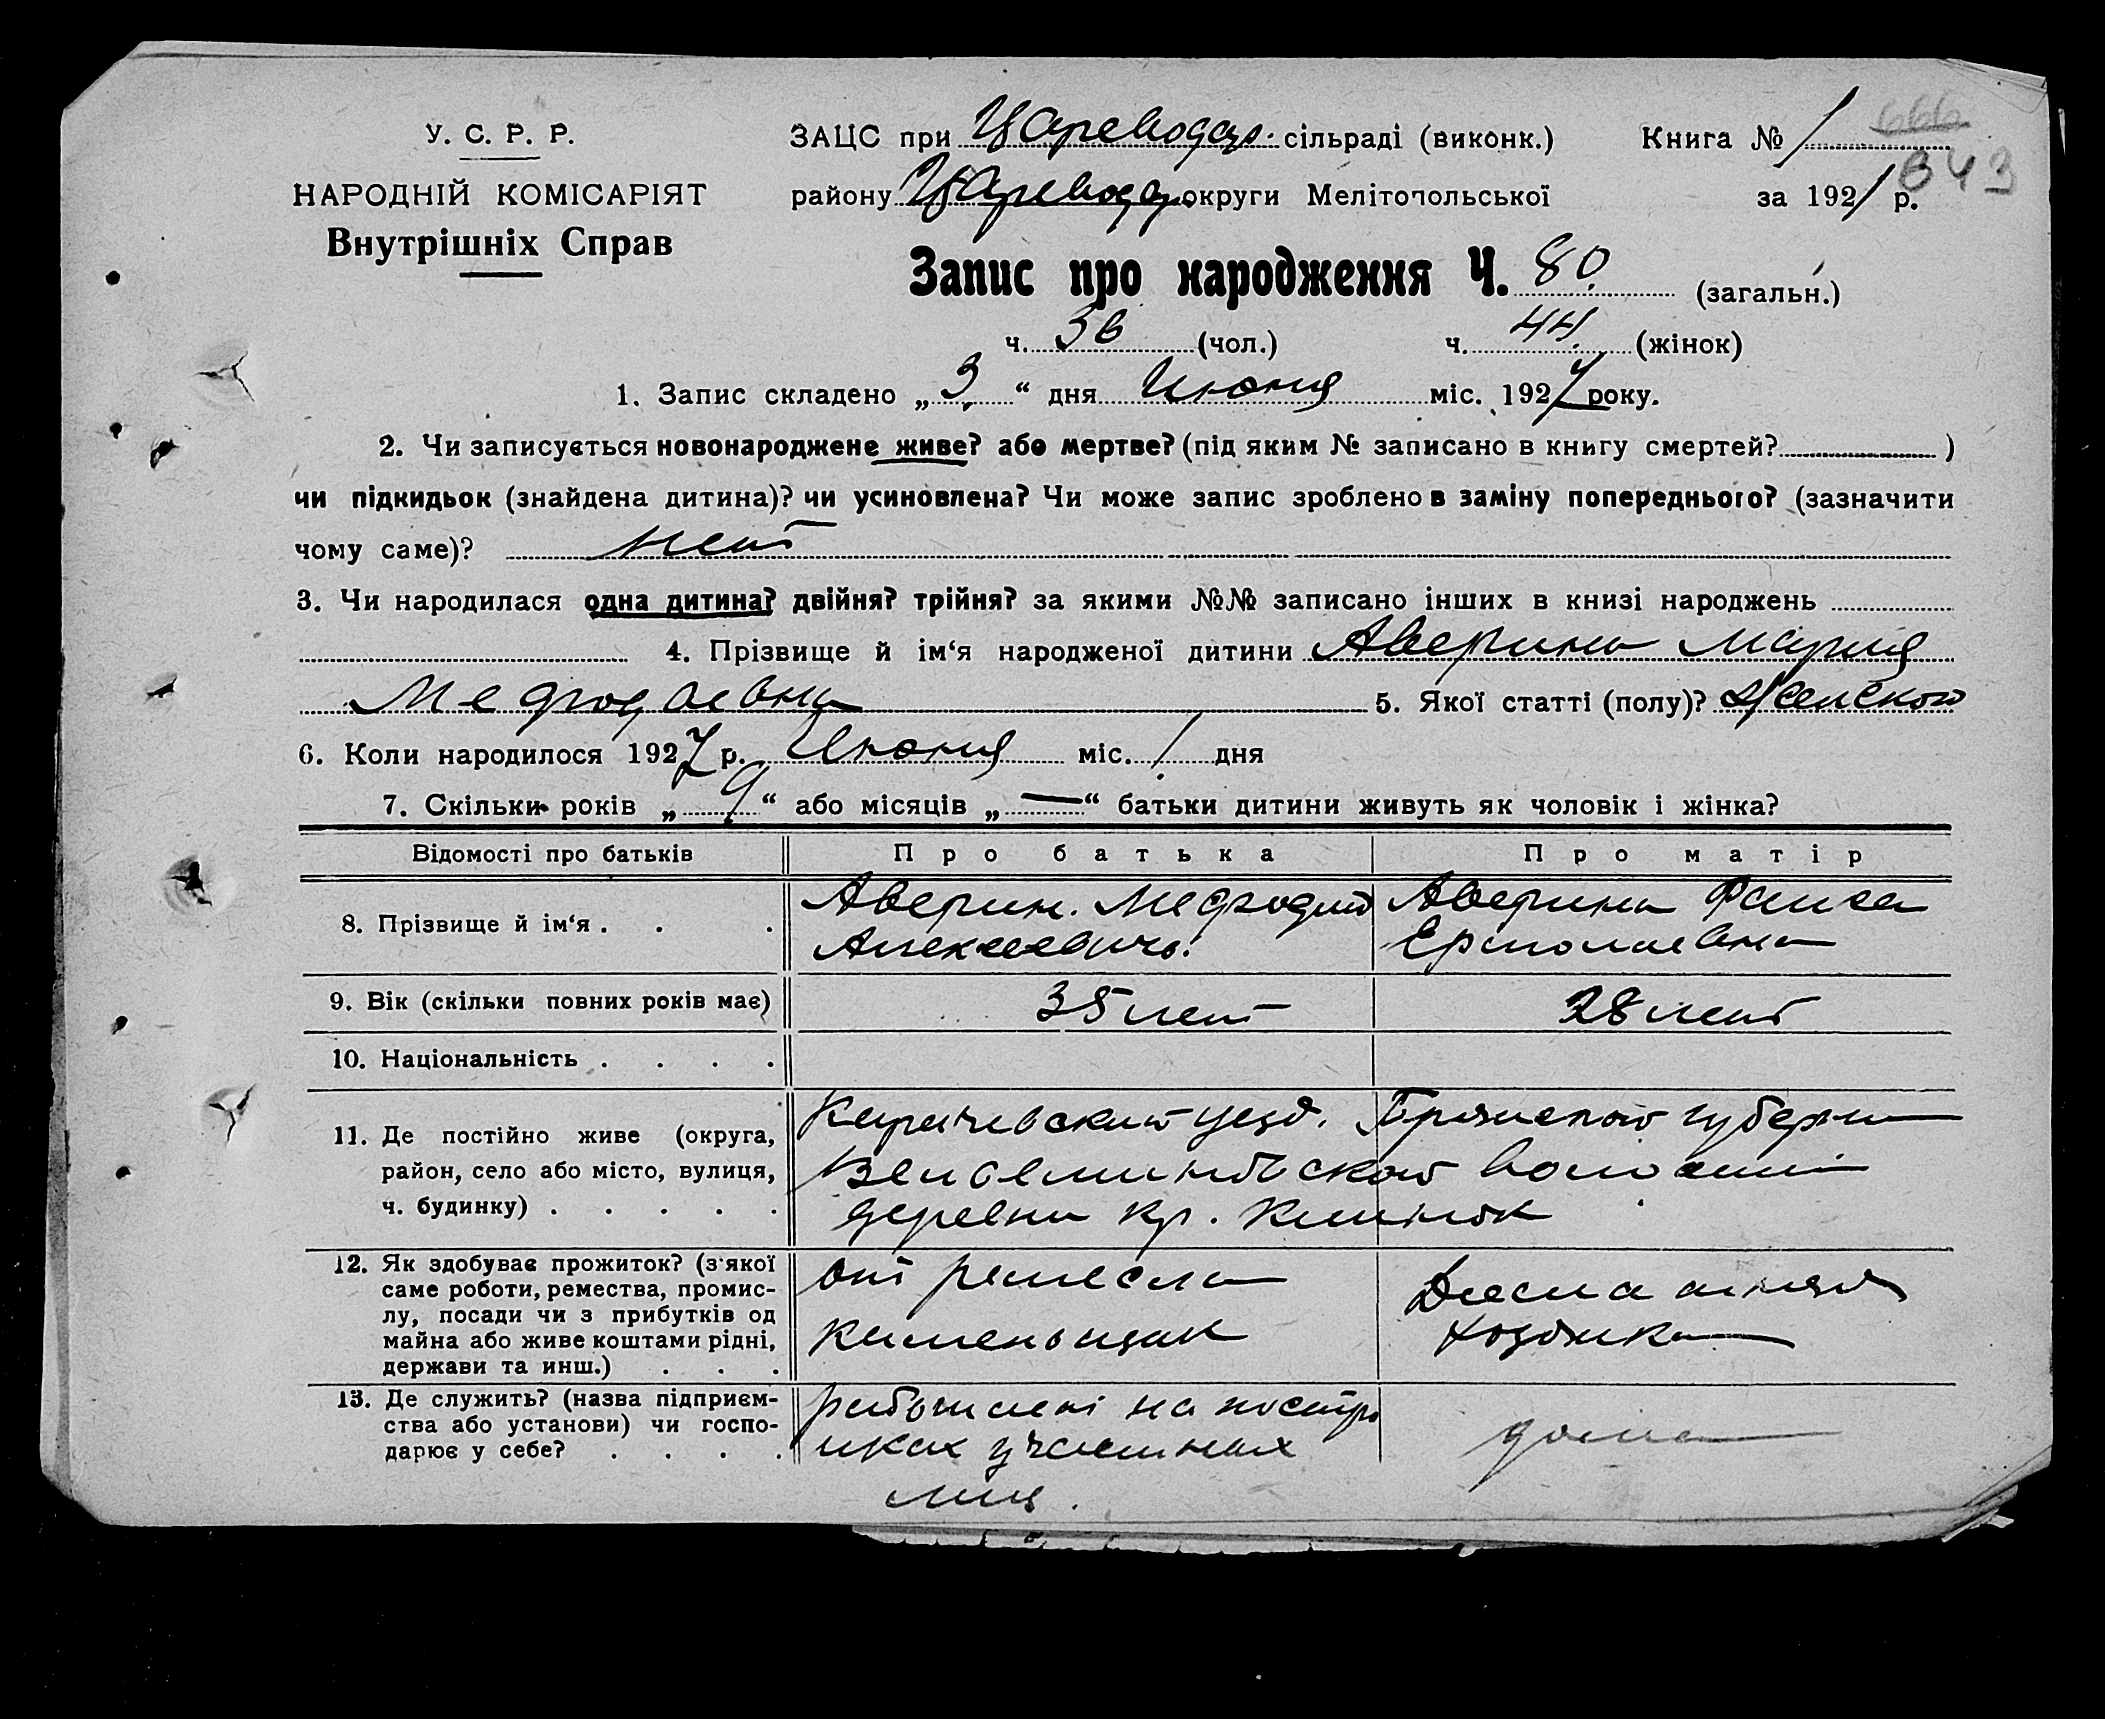 У. С. Р. Р.
НАРОДНІЙ КОМІСАРІЯТ
Внутрішніх Справ
ЗАЦС при Цареводар. сільраді (виконк.) Книга № 1 666
району Цареводар. округи Мелітопольської за 192 р. 343
Запис про народження Ч. 80. (загальн.)
ч. 36 (чол.) ч. 44. (жінок)
1. Запис складено „ 3. “ дня Июня міс. 1927 року.
2. Чи записується новонароджене живе? або мертве? (під яким № записано в книгу смертей? )
чи підкидьок (знайдена дитина)? чи усиновлена? Чи може запис зроблено в заміну попереднього? (зазначити
чому саме)? нет
3. Чи народилася одна дитина? двійня? трійня? за якими №№ записано інших в книзі народжень
4. Прізвище й ім‘я народженої дитини Аверина Мария
Мефодиевна 5. Якої статті (полу)? Женской
6. Коли народилося 1927 р. Июня міс. 1 дня
7. Скільки років „ 9 “ або місяців „ — “ батьки дитини живуть як чоловік і жінка?
Відомості про батьків Про батька Про матір
8. Прізвище й ім‘я . . . Аверин. Мефодий Аверина Раиса
Алексеевичь. Ермолаевна
9. Вік (скільки повних років має) 35 лет 28 лет
10. Національність . . . .
11. Де постійно живе (округа,
район, село або місто, вулиця,
ч. будинку) . . . . .
Карачевский уезд. Брянской губерни
волости
деревни Кр.
12. Як здобуває прожиток? (з‘якої
саме роботи, ремества, промис-
лу, посади чи з прибутків од
майна або живе коштами рідні,
держави та инш.) . . .
от ремесла
каменьщик
Домашняя
хозяйка
13. Де служить? (назва підприєм-
ства або установи) чи госпо-
дарює у себе? . . . .
работает на постро
йках частных
лиц.
дома